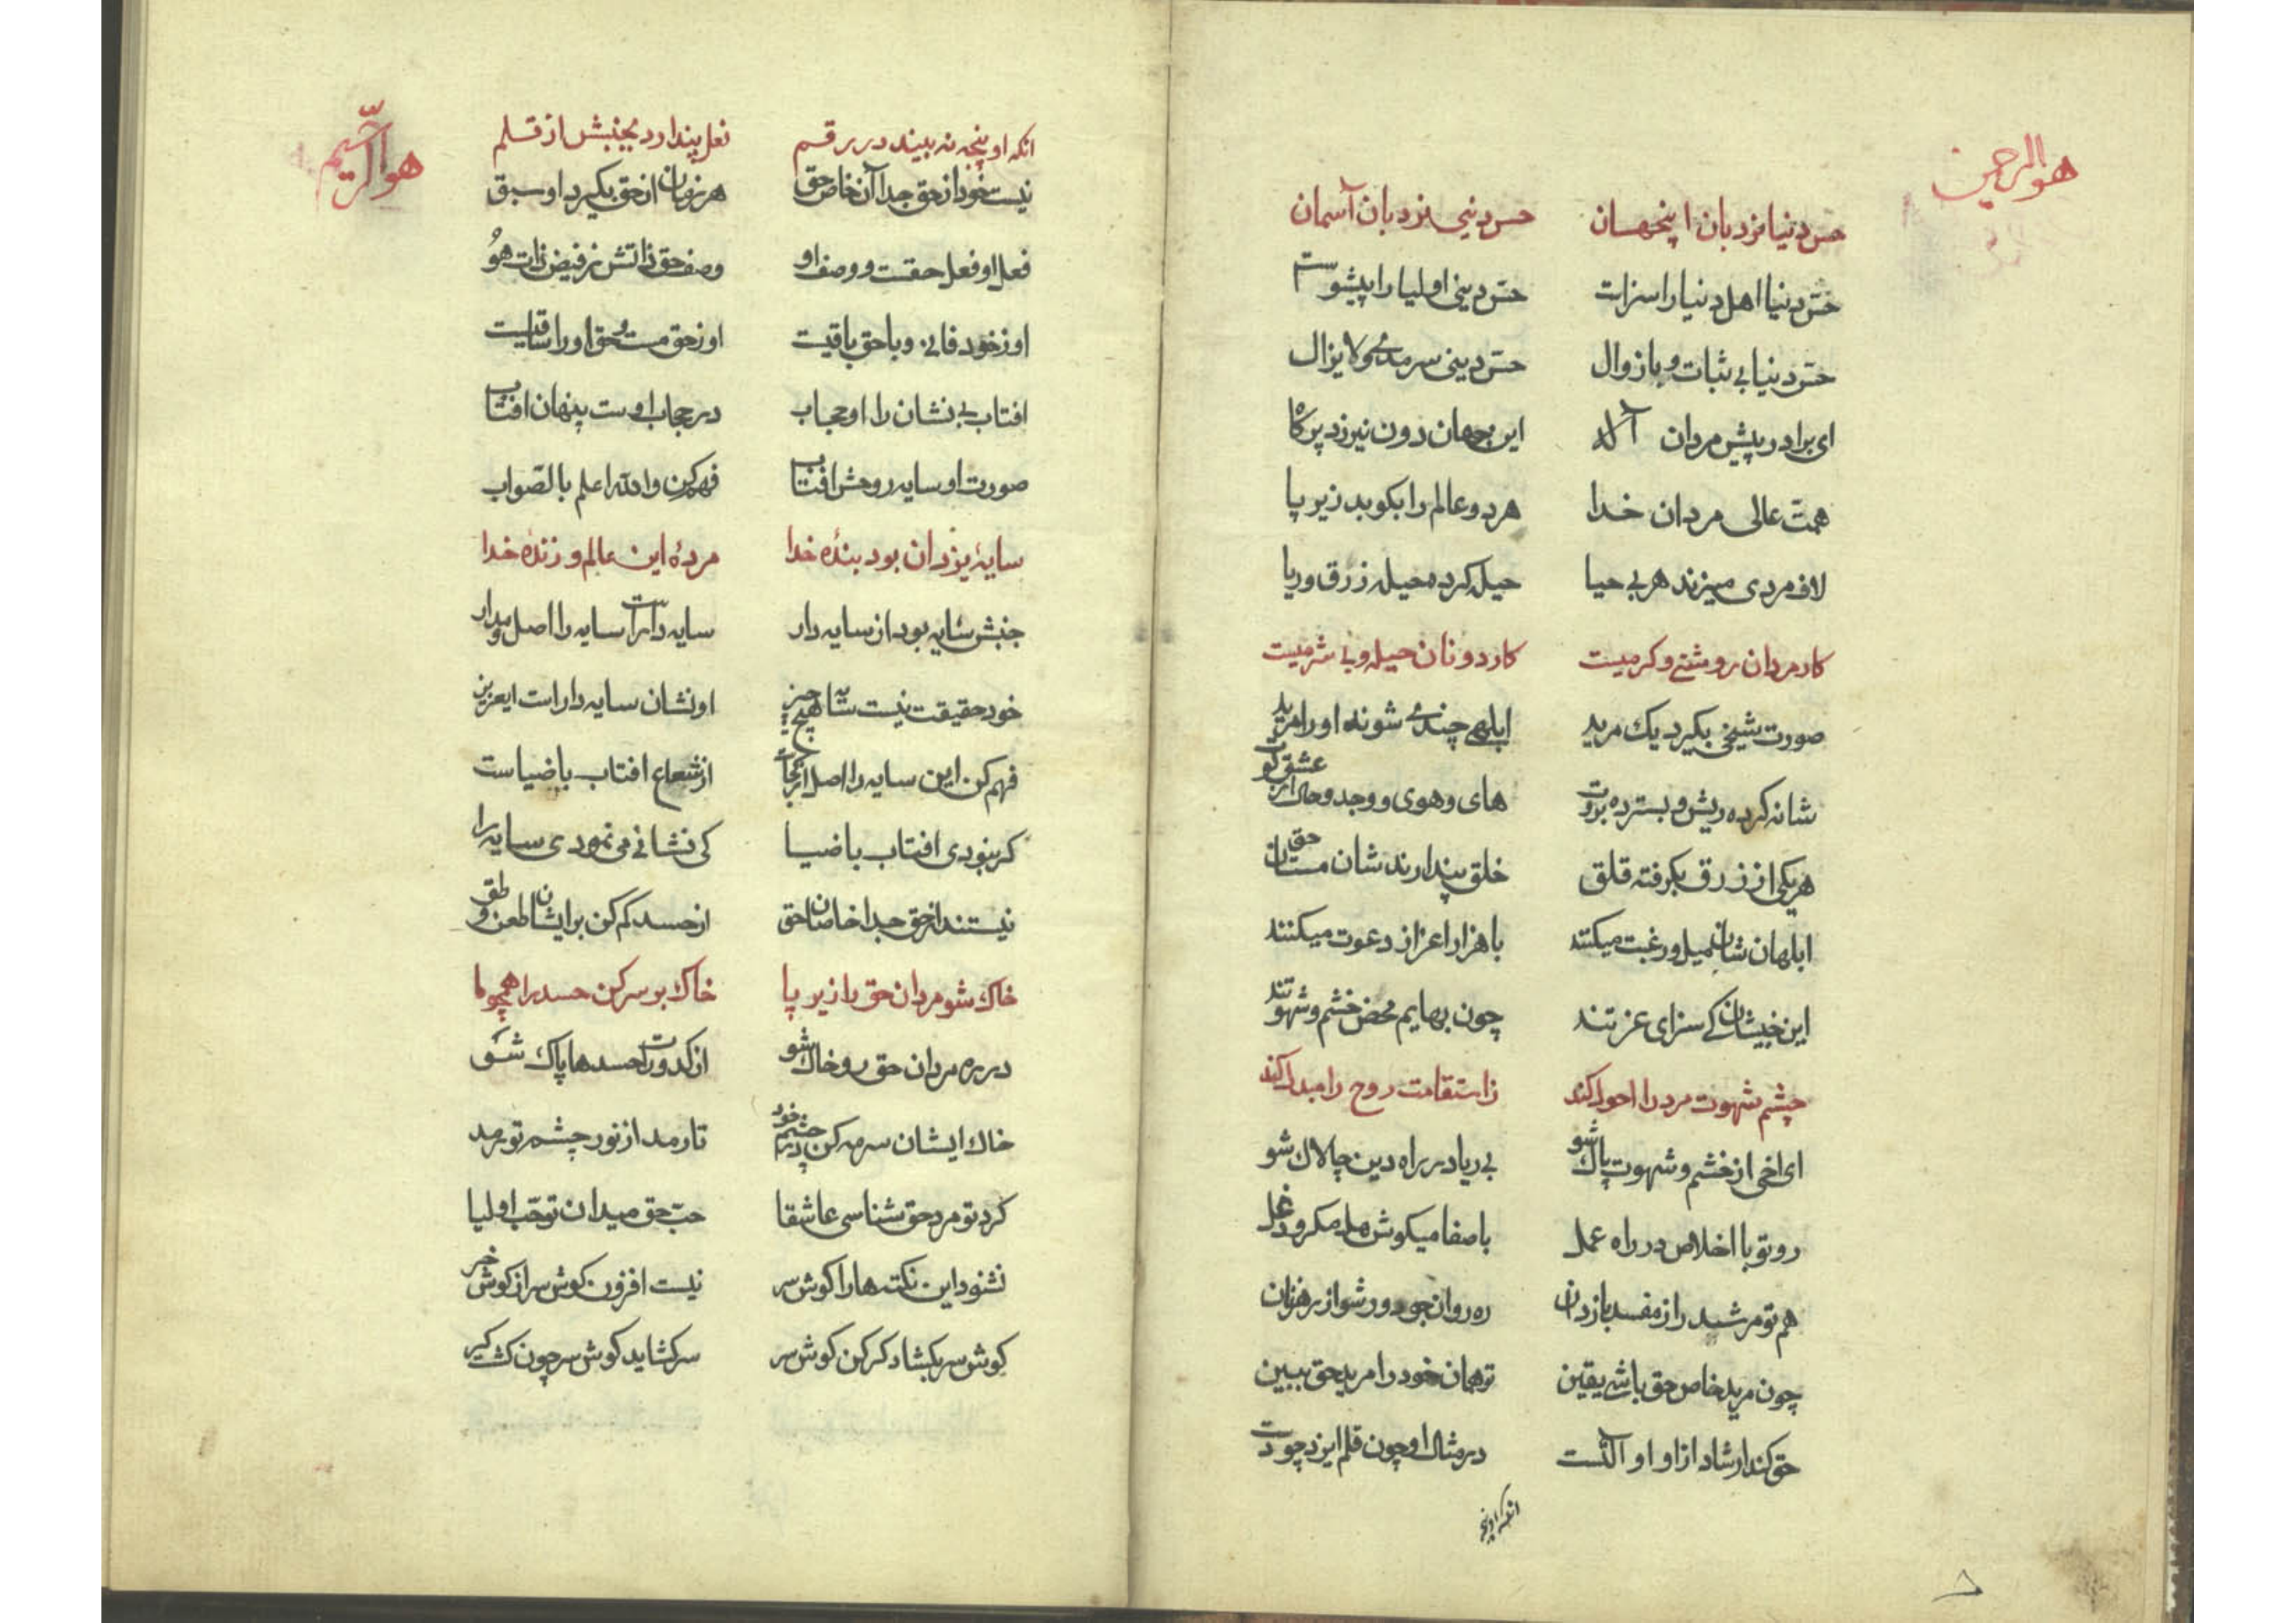 هو الرحمن
حس دنیا نردبان اینجهان حس دینی نردبان آسمان
حسّ دنیا اهل دنیا را سزاست حسّ دینی اولیا را پیشواست
حسّ دنیا بی ثبات و با زوال حسّ دینی سرمدی و لایزال
ای برادر پیش مردان آله این جهان دون نیرزد پر کاه
همت عالی مردان خدا هر دو عالم را بکوبد زیر پا
لاف مردی میزند هر بی حیا حیله کرده حیله زرق و ریا
کار مردان روشنی و کرمیست کار دونان حیله و بی شرمیست
صورت شیخی بکیرد یک مرید ابلهی چندی شوند او را مرید
شانه کرده ریش و بسترده بروت های و هوی و وجد و حال از عشق کو
هر یکی از زرق بکرفته قلق خلق پندارند شان مستان حق
ابلهان شان میل و رغبت میکنند با هزار اعزاز دعوت میکنند
این خبیثان کی سزای عزتند چون بهایم محض خشم و شهوتند
چشم شهوت مرد را احول کند ز استقامت روح را مبدل کند
ای اخی از خشم و شهوت پاک شو بی ریا در راه دین چالاک شو
رو تو با اخلاص در راه عمل با صفا میکوش مکر و دغل
هم تو مرشد را ز مفسد باز دان ره روان جوی دور شو از رهزنان
چون مرید خاص حق باشی یقین تو همان خود را مرید حق ببین
حق کند ارشاد از او او آلتست در مثال او چون قلم ایزد چو دست
انکه او پنجه
هو الرحیم
انکه او پنجه نه بیند در رقم فعل پندارد بجنبش از قلم
نیست خود از حق جدا آن خاص حق هر زمان از حق بکیرد او سبق
فعل او فعل حقست و وصف او وصف حق ذاتش ز فیض ذات هو
او ز خود فانی و با حق باقیست او ز حق مست و حق او را ساقیست
افتاب بی نشان را او حجاب در حجاب اوست پنهان افتاب
صورت او سایه روحش افتاب فهم کن والله اعلم بالصواب
سایۀ یزدان بود بندۀ خدا مردۀ این عالم و زندۀ خدا
جنبش سایه بود از سایه دار سایه دار است سایه را اصل و مدار
خود حقیقت نیست سایه هیچ چیز او نشان سایه دار است ایعزیز
فهم کن این سایه را اصل از کجاست از شعاع افتاب با ضیاست
کر نبودی افتاب با ضیا کی نشانی می نمودی سایه را
نیستند از حق جدا خاصان حق از حسد کم کن بر ایشان طعن و طق
خاک شو مردان حق را زیر پا خاک بر سر کن حسد را همچو ما
در ره مردان حق رو خاک شو از کدورات حسدها پاک شو
خاک ایشان سرمه کن در چشم خود تا رمد از نور چشم تو رمد
کر تو مرد حق شناسی عاشقا حبّ حق میدان تو حبّ اولیا
نشنود این نکته ها را کوش سر نیست افزون کوش سر از کوش خر
کوش سر بکشاد کر کن کوش سر سر کشاید کوش سر چون کشت کر